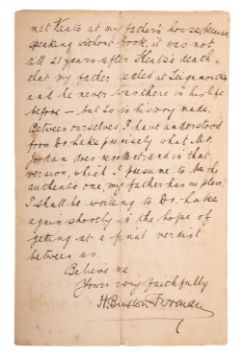 met Keats at my father's house, because,
speaking without book, it was not
till 21 years after Keats's death
that my father settled at Teignmouth
and he never was there in his life
before — but so is history made.
Between ourselves I have understood
from Dr. Lake precisely what Mr.
Jordan does recollect and in that
version, which I presume to be the
authentic one, my father has no place.
I shall be writing to Dr. Lake
again shortly in the hope of
getting at a final verdict
between us.
Believe me
Yours very faithfully
H. Buxton Forman